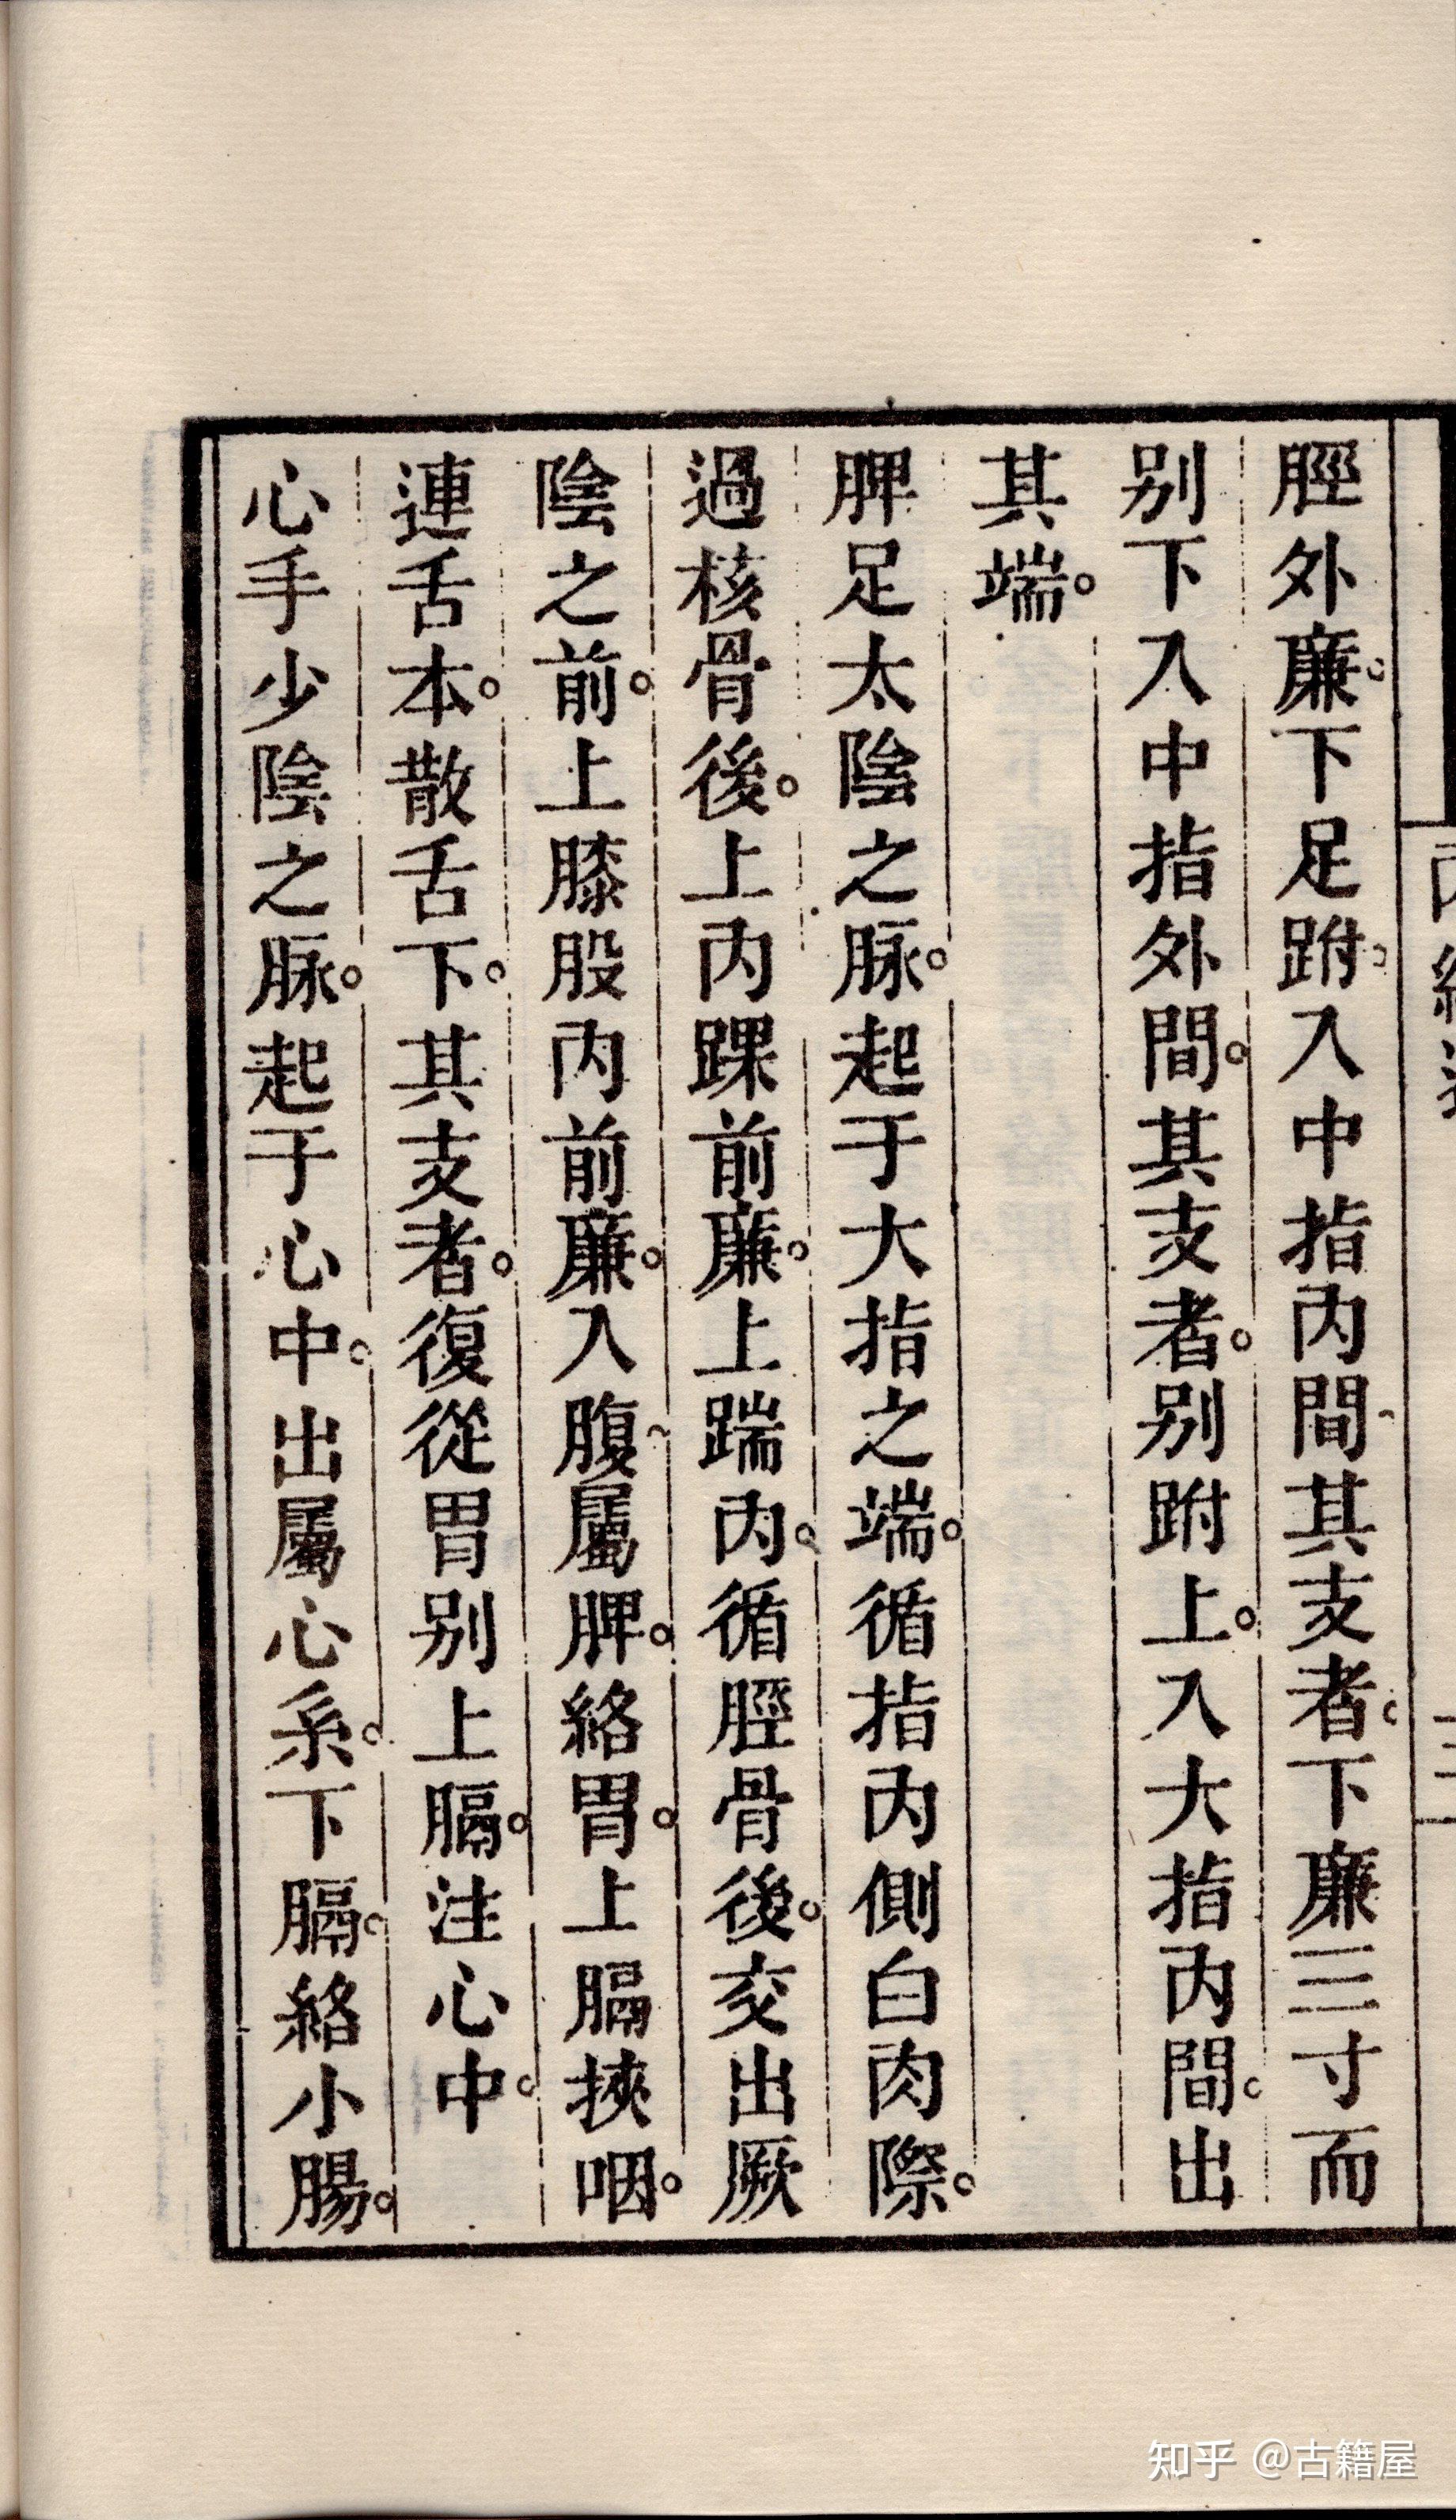 脛外廉。下足跗。入中指內間。其支者。下廉三寸而
別下入中指外間。其支者。別跗上。入大指內間。出
其端。
脾足太陰之脉。起于大指之端。循指內側白肉際。
過核骨後。上內踝前廉。上踹內。循脛骨後。交出厥
陰之前。上膝股內前廉。入腹。屬脾。絡胃。上膈挾咽。
連舌本。散舌下。其支者。復從胃別上膈。注心中。
心手少陰之脉。起于心中。出屬心系。下膈。絡小腸。
知乎 @古籍屋